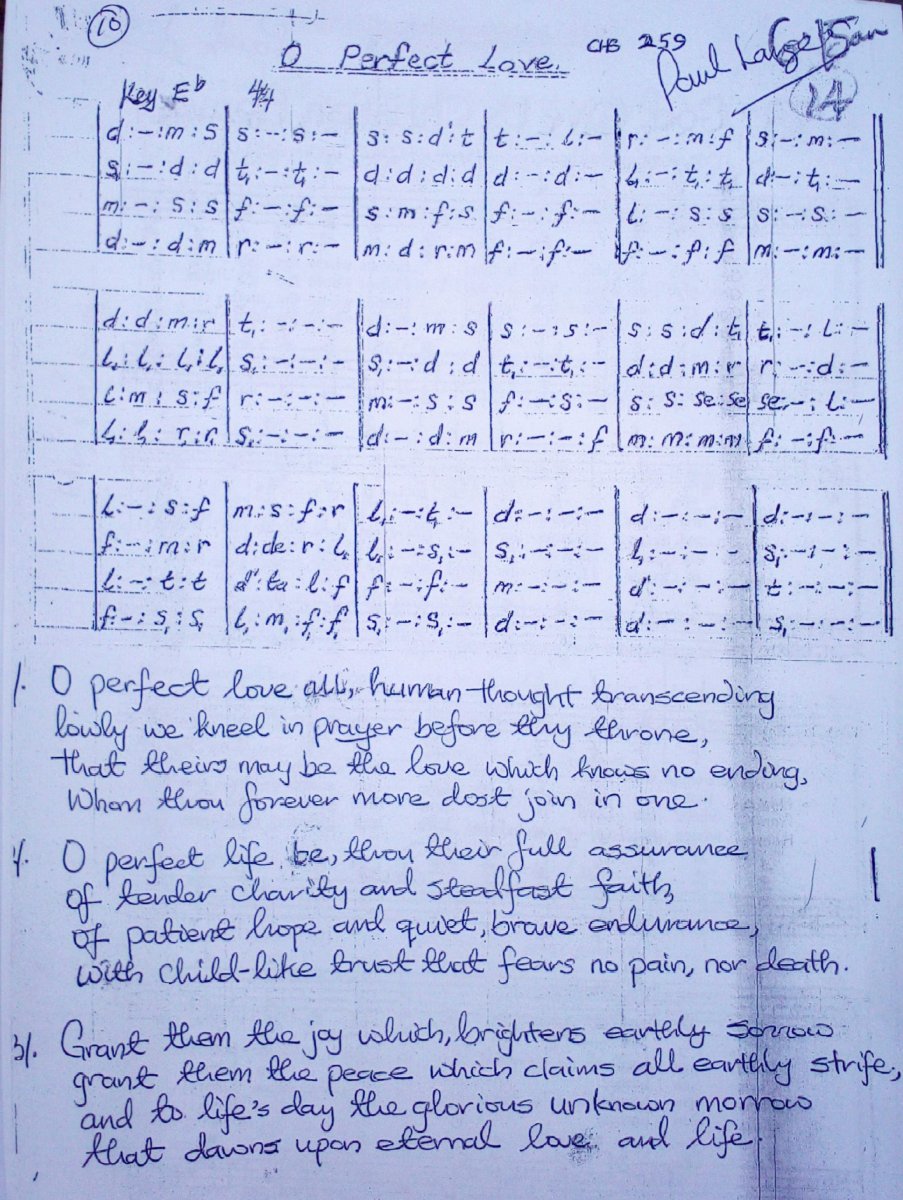 10
O Perfect Love.
CHB 259
Paul
14
Key Eb 4/4
d:-:m:s | s:-:s:- | s:s:d':t | t:-:l:- | r:-:m:f | s:-:m:-
s,:-:d:d | t,:-:t,:- | d:d:d:d | d:-:d:- | l,:-:t,:t, | d:-:t,:-
m:-:s:s | f:-:f:- | s:m:f:s | f:-:f:- | l:-:s:s | s:-:s:-
d:-:d:m | r:-:r:- | m:d:r:m | f:-:f:- | f:-:f:f | m:-:m:-
d:d:m:r | t,:-:-:- | d:-:m:s | s:-:s:- | s:s:d:t, | t,:-:l:-
l,:l,:l,:l, | s,:-:-:- | s,:-:d:d | t,:-:t,:- | d:d:m:r | r:-:d:-
l:m:s:f | r:-:-:- | m:-:s:s | f:-:s:- | s:s:se:se | se:-:l:-
l,:l,:r:r | s,:-:-:- | d:-:d:m | r:-:-:f | m:m:m:m | f:-:f:-
l:-:s:f | m:s:f:r | l,:-:t,:- | d:-:-:- | d:-:-:- | d:-:-:-
f:-:m:r | d:de:r:l, | l,:-:s,:- | s,:-:-:- | l,:-:-:- | s,:-:-:-
l:-:t:t | d':ta:l:f | f:-:f:- | m:-:-:- | d':-:-:- | t:-:-:-
f:-:s,:s, | l,:m,:f,:f, | s,:-:s,:- | d:-:-:- | d':-:-:- | s,:-:-:-
1. O perfect love all, human thought transcending
lowly we kneel in prayer before thy throne,
that theirs may be the love which knows no ending,
Whom thou forever more dost join in one.
2/. O perfect life be, thou their full assurance
of tender charity and steadfast faith,
of patient hope and quiet, brave endurance,
with child-like trust that fears no pain, nor death.
3/. Grant them the joy which, brightens earthly sorrow
grant them the peace which claims all earthly strife,
and to life's day the glorious unknown morrow
that dawns upon eternal love and life.